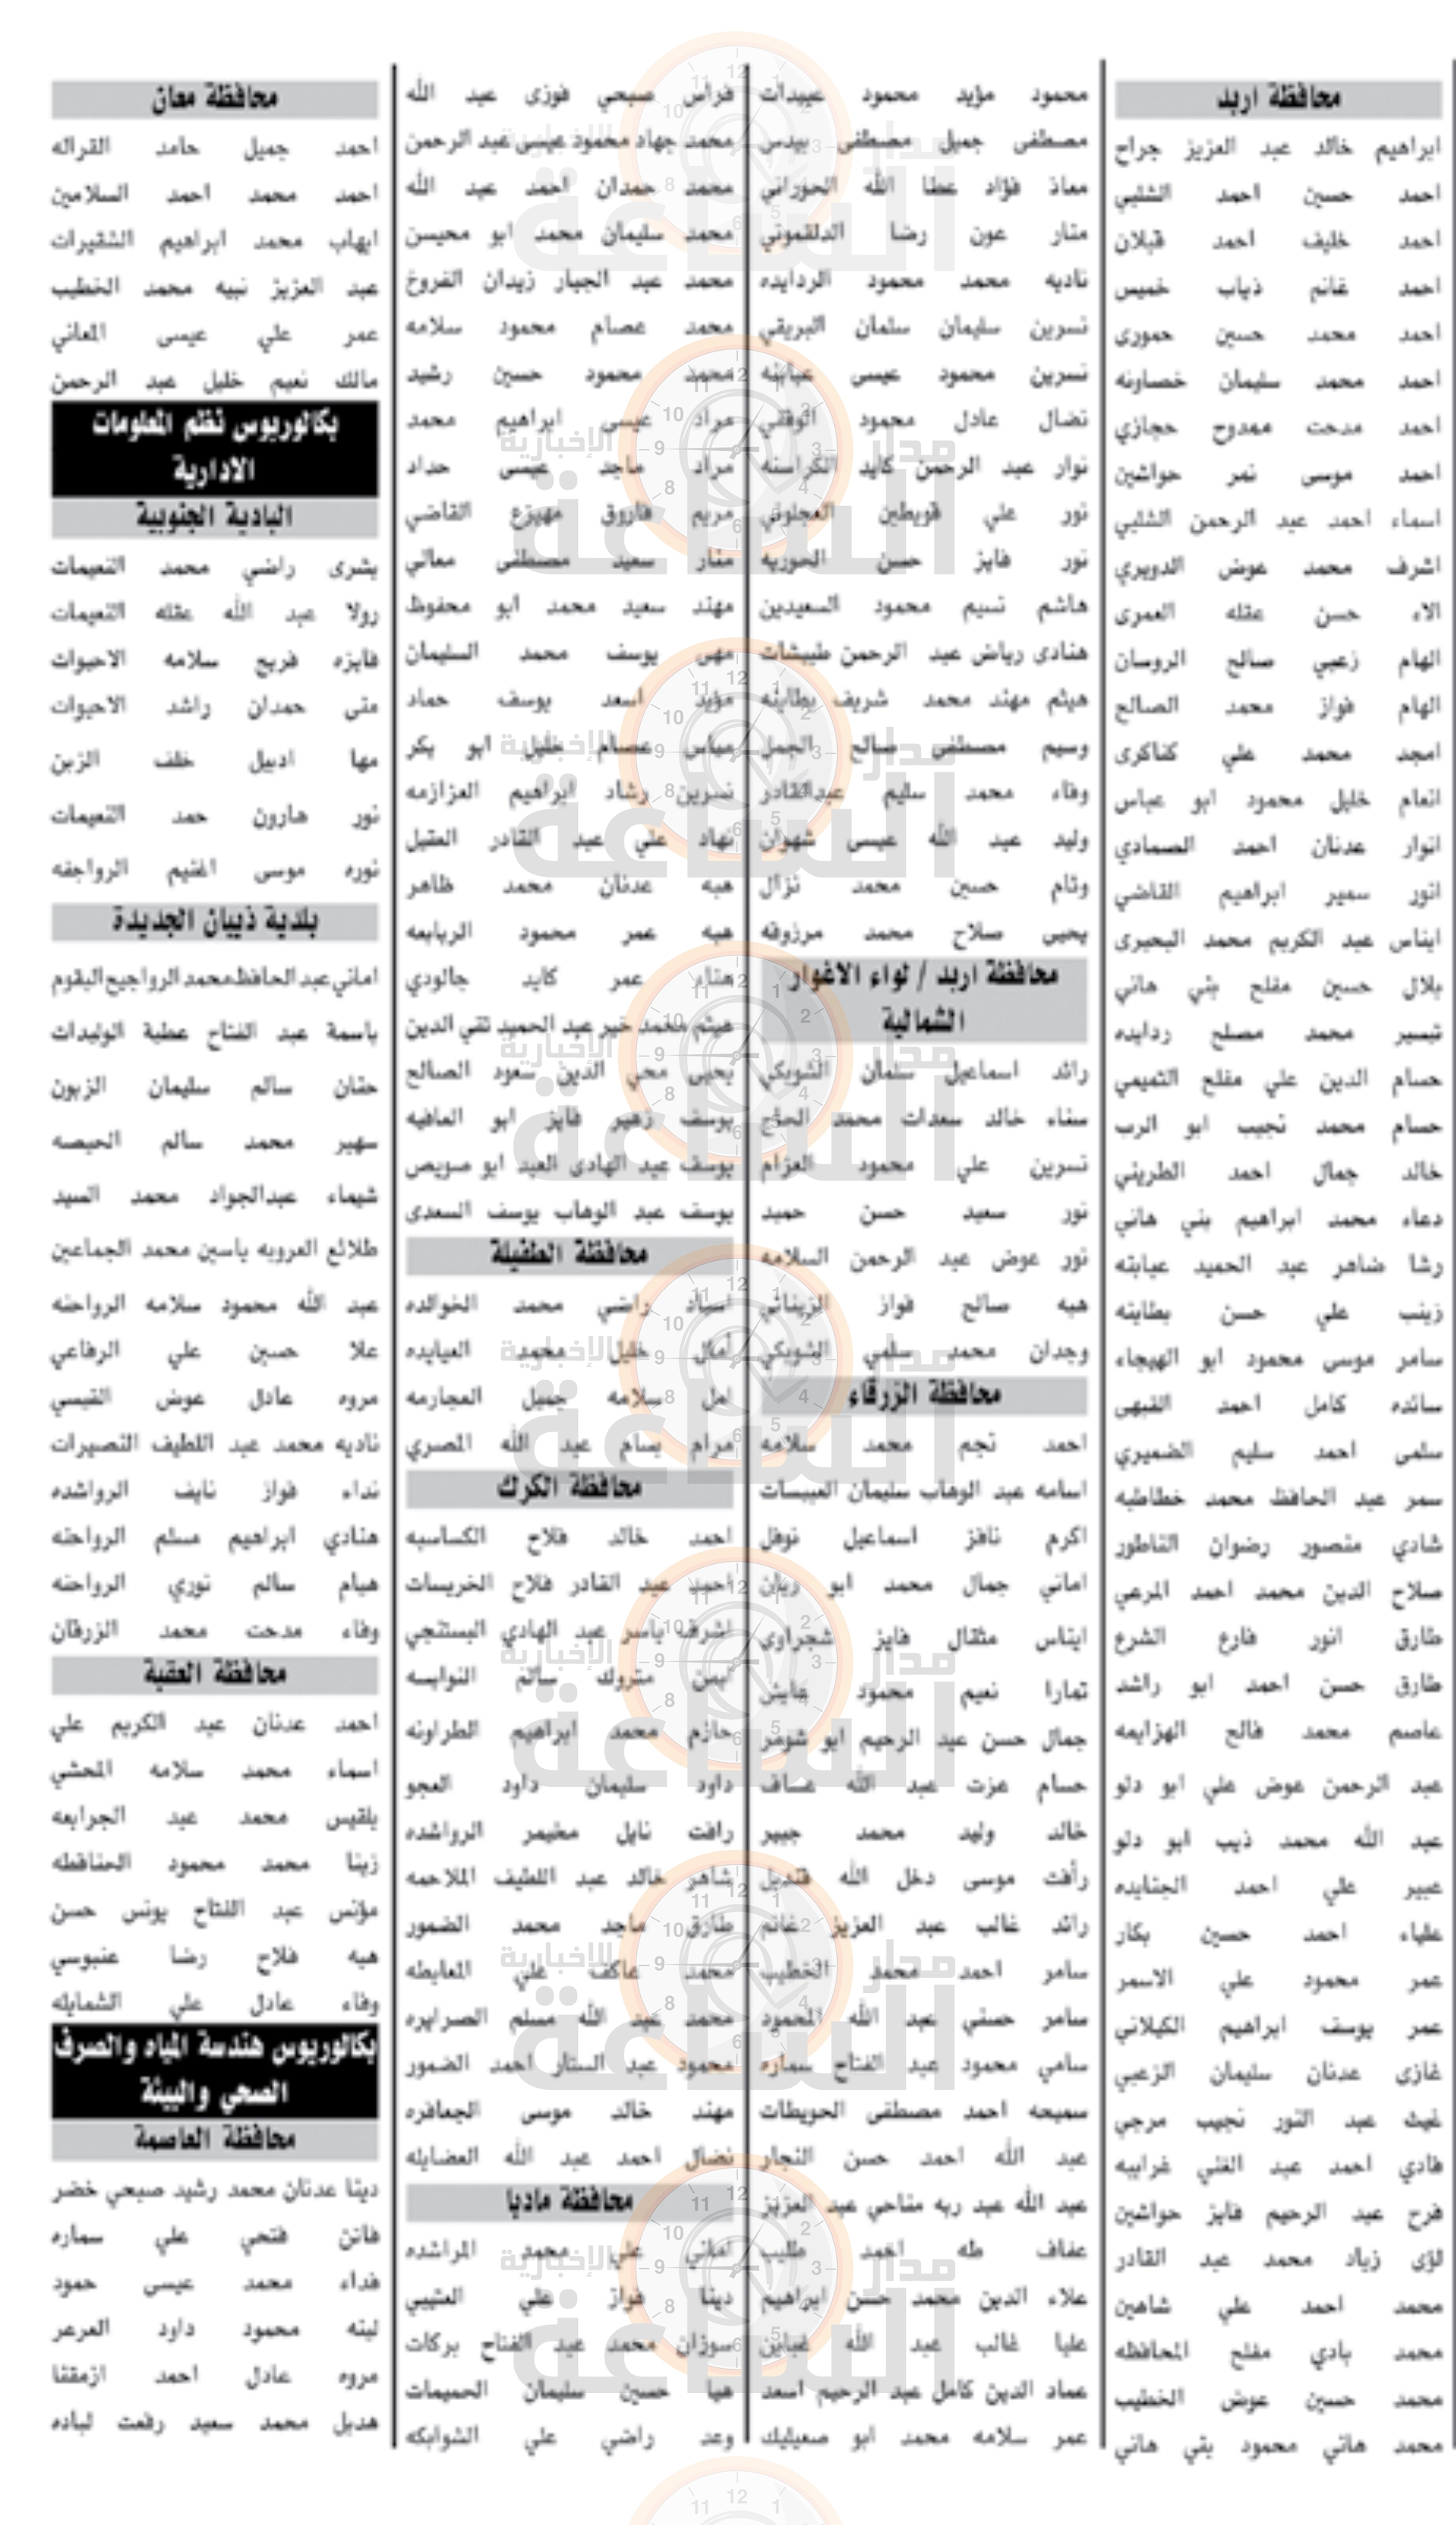 محافظة اربد
ابراهيم خالد عبد العزيز جراح
احمد حسين احمد الشلبي
احمد خليف احمد قبلان
احمد غانم ذياب خميس
احمد محمد حسين حمورى
احمد محمد سليمان خصاونه
احمد مدحت ممدوح حجازي
احمد موسى نمر حواشين
اسماء احمد عبد الرحمن الشلبي
اشرف محمد عوض الدويري
الاء حسن عقله العمرى
الهام زعبي صالح الروسان
الهام فواز محمد الصالح
امجد محمد علي كناكرى
انعام خليل محمود ابو عباس
انوار عدنان احمد الصمادي
انور سمير ابراهيم القاضي
ايناس عبد الكريم محمد البحيرى
بلال حسين مفلح بني هاني
تيسير محمد مصلح ردايده
حسام الدين علي مفلح التميمي
حسام محمد نجيب ابو الرب
خالد جمال احمد الطريني
دعاء محمد ابراهيم بني هاني
رشا ضاهر عبد الحميد عبابنه
زينب علي حسن بطاينه
سامر موسى محمود ابو الهيجاء
سائده كامل احمد الفيهى
سلمى احمد سليم الضميري
سمر عبد الحافظ محمد خطاطبه
شادي منصور رضوان الناطور
صلاح الدين محمد احمد المرعي
طارق انور فارع الشرع
طارق حسن احمد ابو راشد
عاصم محمد فالح الهزايمه
عبد الرحمن عوض علي ابو دلو
عبد الله محمد ذيب ابو دلو
عبير علي احمد الجنايده
علياء احمد حسين بكار
عمر محمود علي الاسمر
عمر يوسف ابراهيم الكيلاني
غازى عدنان سليمان الزعبي
غيث عبد النور نجيب مرجي
فادي احمد عبد الغني غرايبه
فرح عبد الرحيم فايز حواشين
لؤى زياد محمد عبد القادر
محمد احمد علي شاهين
محمد بادي مفلح المحافظه
محمد حسين عوض الخطيب
محمد هاني محمود بني هاني
محمود مؤيد محمود عبيدات
مصطفى جميل مصطفى بيدس
معاذ فؤاد عطا الله الحوراني
منار عون رضا الدلقموني
ناديه محمد محمود الردايده
نسرين سليمان سلمان البريقي
نسرين محمود عيسى عبابنه
نضال عادل محمود الوقفي
نوار عبد الرحمن كايد الكراسنه
نور علي قويطين العجلوني
نور فايز حسن الحوريه
هاشم نسيم محمود السعيدين
هنادى رياض عبد الرحمن طبيشات
هيثم مهند محمد شريف بطاينه
وسيم مصطفى صالح الجمل
وفاء محمد سليم عبدالقادر
وليد عبد الله عيسى شهوان
وئام حسين محمد نزال
يحيى صلاح محمد مرزوقه
محافظة اربد / لواء الاغوار
الشمالية
رائد اسماعيل سلمان الشويكي
سناء خالد سعدات محمد الحاج
نسرين علي محمود العزام
نور سعيد حسن حميد
نور عوض عبد الرحمن السلامه
هبه صالح فواز الزيناتي
وجدان محمد سلمي الشويكي
محافظة الزرقاء
احمد نجم محمد سلامه
اسامه عبد الوهاب سليمان العبيسات
اكرم نافز اسماعيل نوفل
اماني جمال محمد ابو ريان
ايناس مثقال فايز شجراوي
تمارا نعيم محمود عايش
جمال حسن عبد الرحيم ابو شومر
حسام عزت عبد الله عساف
خالد وليد محمد جبير
رأفت موسى دخل الله قنديل
رائد غالب عبد العزيز غانم
سامر احمد محمد الخطيب
سامر حسني عبد الله المحمود
سامي محمود عبد الفتاح سماره
سميحه احمد مصطفى الحويطات
عبد الله احمد حسن النجار
عبد الله عبد ربه مناحي عبد العزيز
عفاف طه احمد طليب
علاء الدين محمد حسن ابراهيم
عليا غالب عبد الله غباين
عماد الدين كامل عبد الرحيم اسعد
عمر سلامه محمد ابو صعيليك
فراس صبحي فوزى عبد الله
محمد جهاد محمود عيسى عبد الرحمن
محمد حمدان احمد عبد الله
محمد سليمان محمد ابو محيسن
محمد عبد الجبار زيدان الفروخ
محمد عصام محمود سلامه
محمد محمود حسين رشيد
مراد عيسى ابراهيم محمد
مراد ماجد عيسى حداد
مريم فاروق مهيزع القاضي
منار سعيد مصطفى معالي
مهند سعيد محمد ابو محفوظ
مهى يوسف محمد السليمان
مؤيد اسعد يوسف حماد
مياس عصام خليل ابو بكر
نسرين رشاد ابراهيم العزازمه
نهاد علي عبد القادر العقيل
هبه عدنان محمد ظاهر
هبه عمر محمود الربابعه
هناء عمر كايد جالودي
هيثم محمد خير عبد الحميد تقي الدين
يحيى محي الدين سعود الصالح
يوسف زهير فايز ابو العافيه
يوسف عبد الهادى العبد ابو صويص
يوسف عبد الوهاب يوسف السعدى
محافظة الطفيلة
اسياد راضي محمد الخوالده
أمال خليل محمد العبايده
امل سلامه جميل المجارمه
مرام بسام عبد الله المصري
محافظة الكرك
احمد خالد فلاح الكساسبه
احمد عبد القادر فلاح الخريسات
اشرف ياسر عبد الهادي البستنجي
ايمن متروك سالم النوايسه
حازم محمد ابراهيم الطراونه
داود سليمان داود العجو
رافت نايل مخيمر الرواشده
شاهر خالد عبد اللطيف الملاحمه
طارق ماجد محمد الضمور
محمد عاكف علي المعايطه
محمد عبد الله مسلم الصرايره
محمود عبد الستار احمد الضمور
مهند خالد موسى الجعافره
نضال احمد عبد الله العضايله
محافظة مادبا
اماني علي محمد المراشده
دينا فواز علي العتيبي
سوزان محمد عبد الفتاح بركات
هيا حسين سليمان الحميمات
وعد راضي علي الشوابكه
محافظة معان
احمد جميل حامد القراله
احمد محمد احمد السلامين
ايهاب محمد ابراهيم الشقيرات
عبد العزيز نبيه محمد الخطيب
عمر علي عيسى المعاني
مالك نعيم خليل عبد الرحمن
بكالوريوس نظم المعلومات
الادارية
البادية الجنوبية
بشرى راضي محمد النعيمات
رولا عبد الله عقله النعيمات
فايزه فريج سلامه الاحيوات
منى حمدان راشد الاحيوات
مها ادبيل خلف الزبن
نور هارون حمد النعيمات
نوره موسى اغنيم الرواجفه
بلدية ذيبان الجديدة
اماني عبد الحافظ محمد الرواجيح البقوم
باسمة عبد الفتاح عطية الوليدات
حنان سالم سليمان الزبون
سهير محمد سالم الحيصه
شيماء عبدالجواد محمد السيد
طلائع العروبه ياسين محمد الجماعين
عبد الله محمود سلامه الرواحنه
علا حسين علي الرفاعي
مروه عادل عوض القيسي
ناديه محمد عبد اللطيف النصيرات
نداء فواز نايف الرواشده
هنادي ابراهيم مسلم الرواحنه
هيام سالم نوري الرواحنه
وفاء مدحت محمد الزرقان
محافظة العقبة
احمد عدنان عبد الكريم علي
اسماء محمد سلامه المحشي
بلقيس محمد عيد الجرابعه
زينا محمد محمود الحنافطه
مؤنس عبد الفتاح يونس حسن
هبه فلاح رضا عنبوسي
وفاء عادل علي الشمايله
بكالوريوس هندسة المياه والصرف
الصحي والبيئة
محافظة العاصمة
دينا عدنان محمد رشيد صبحي خضر
فاتن فتحي علي سماره
فداء محمد عيسى حمود
لينه محمود داود العرعر
مروه عادل احمد ازمقنا
هديل محمد سعيد رفعت لباده
مدار الساعة الإخبارية